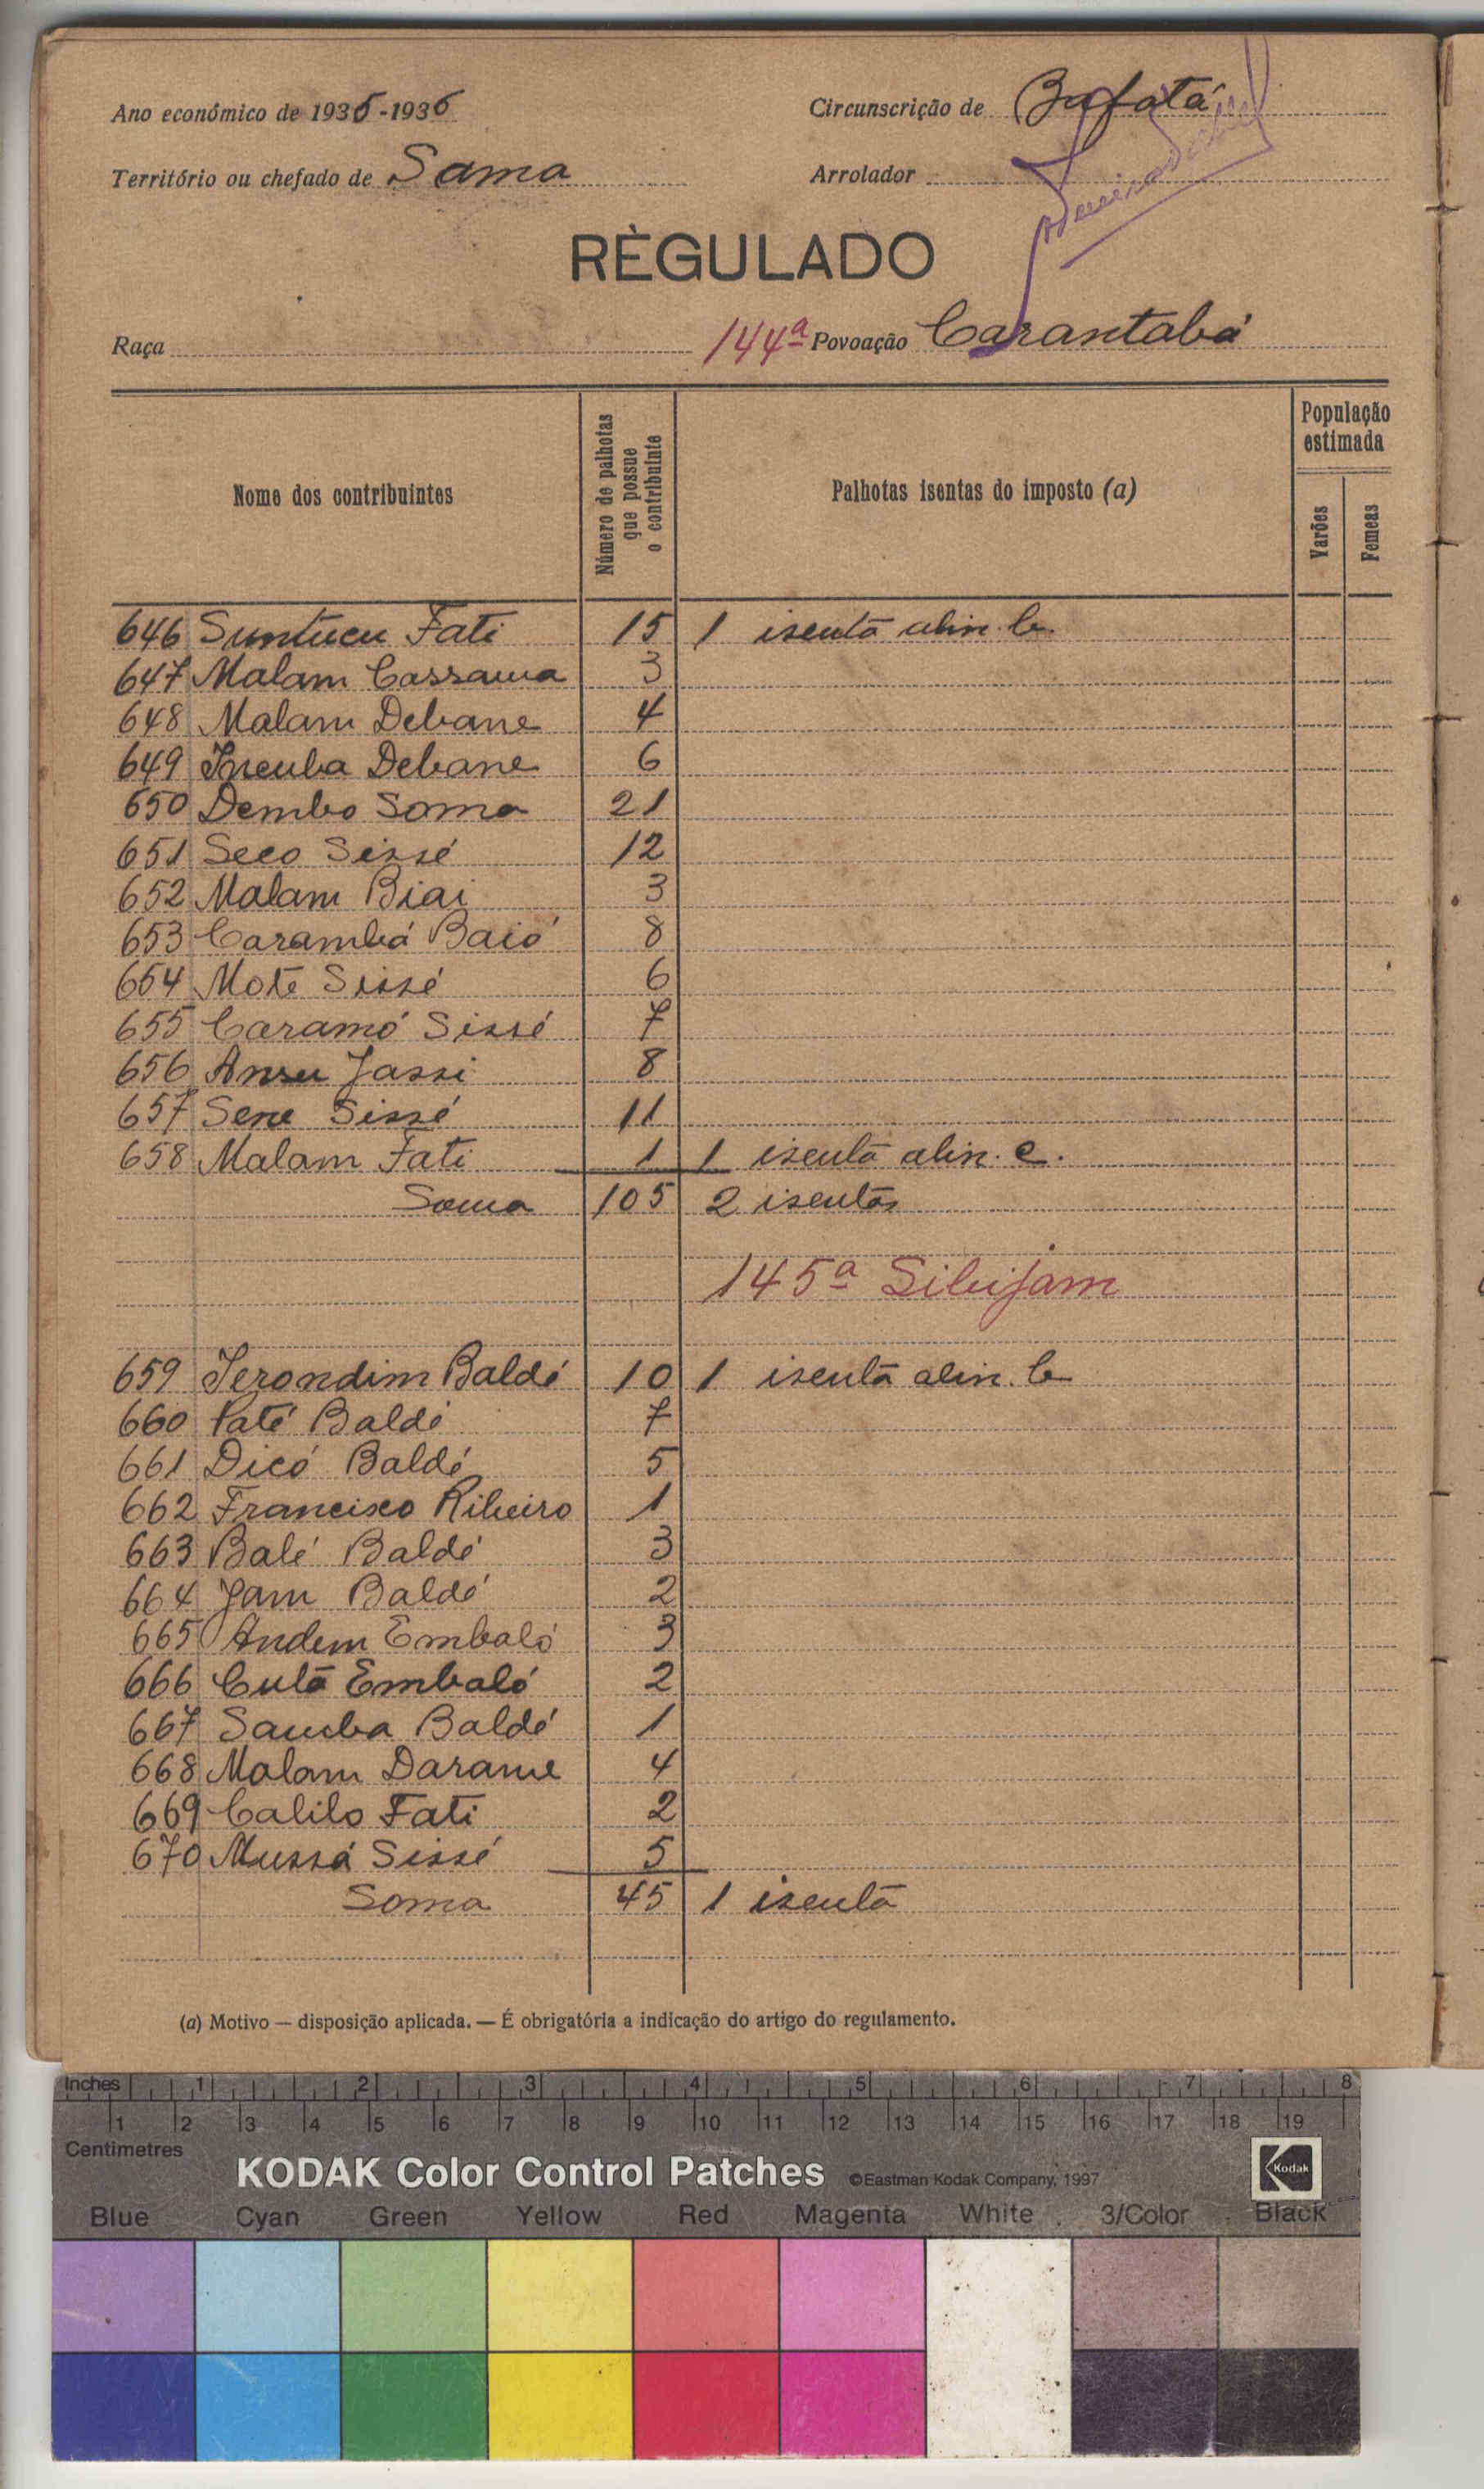 Ano económico de 1935-1936
Circunscrição de Bafatá
Território ou chefado de Sama
Arrolador
RÈGULADO
Raça
144ª Povoação Carantabá
Nome dos contribuintes
Número de palhotas que possue o contribuinte
Palhotas isentas do imposto (a)
População estimada
Varões
Femeas
646 Suntucu Fati 15 1 isenta alin. b.
647 Malam Cassama 3
648 Malam Debane 4
649 Incuba Debane 6
650 Dembo Soma 21
651 Seco Sissé 12
652 Malam Biai 3
653 Carambá Baió 8
654 Mote Sissé 6
655 Caramó Sissé 7
656 Ansu Jassi 8
657 Sene Sissé 11
658 Malam Fati 1 1 isenta alin. c.
Soma 105 2 isentas
145ª Sibijam
659 Jerondim Baldé 10 1 isenta alin. b
660 Paté Baldé 7
661 Dicó Baldé 5
662 Francisco Ribeiro 1
663 Balé Baldé 3
664 Jam Baldé 2
665 Andem Embaló 3
666 Culá Embaló 2
667 Samba Baldé 1
668 Malam Darame 4
669 Calilo Fati 2
670 Mussá Sissé 5
Soma 45 1 isenta
(a) Motivo — disposição aplicada. — É obrigatória a indicação do artigo do regulamento.
Inches 1 2 3 4 5 6 7 8
1 2 3 4 5 6 7 8 9 10 11 12 13 14 15 16 17 18 19
Centimetres
KODAK Color Control Patches ©Eastman Kodak Company, 1997 Kodak
Blue Cyan Green Yellow Red Magenta White 3/Color Black